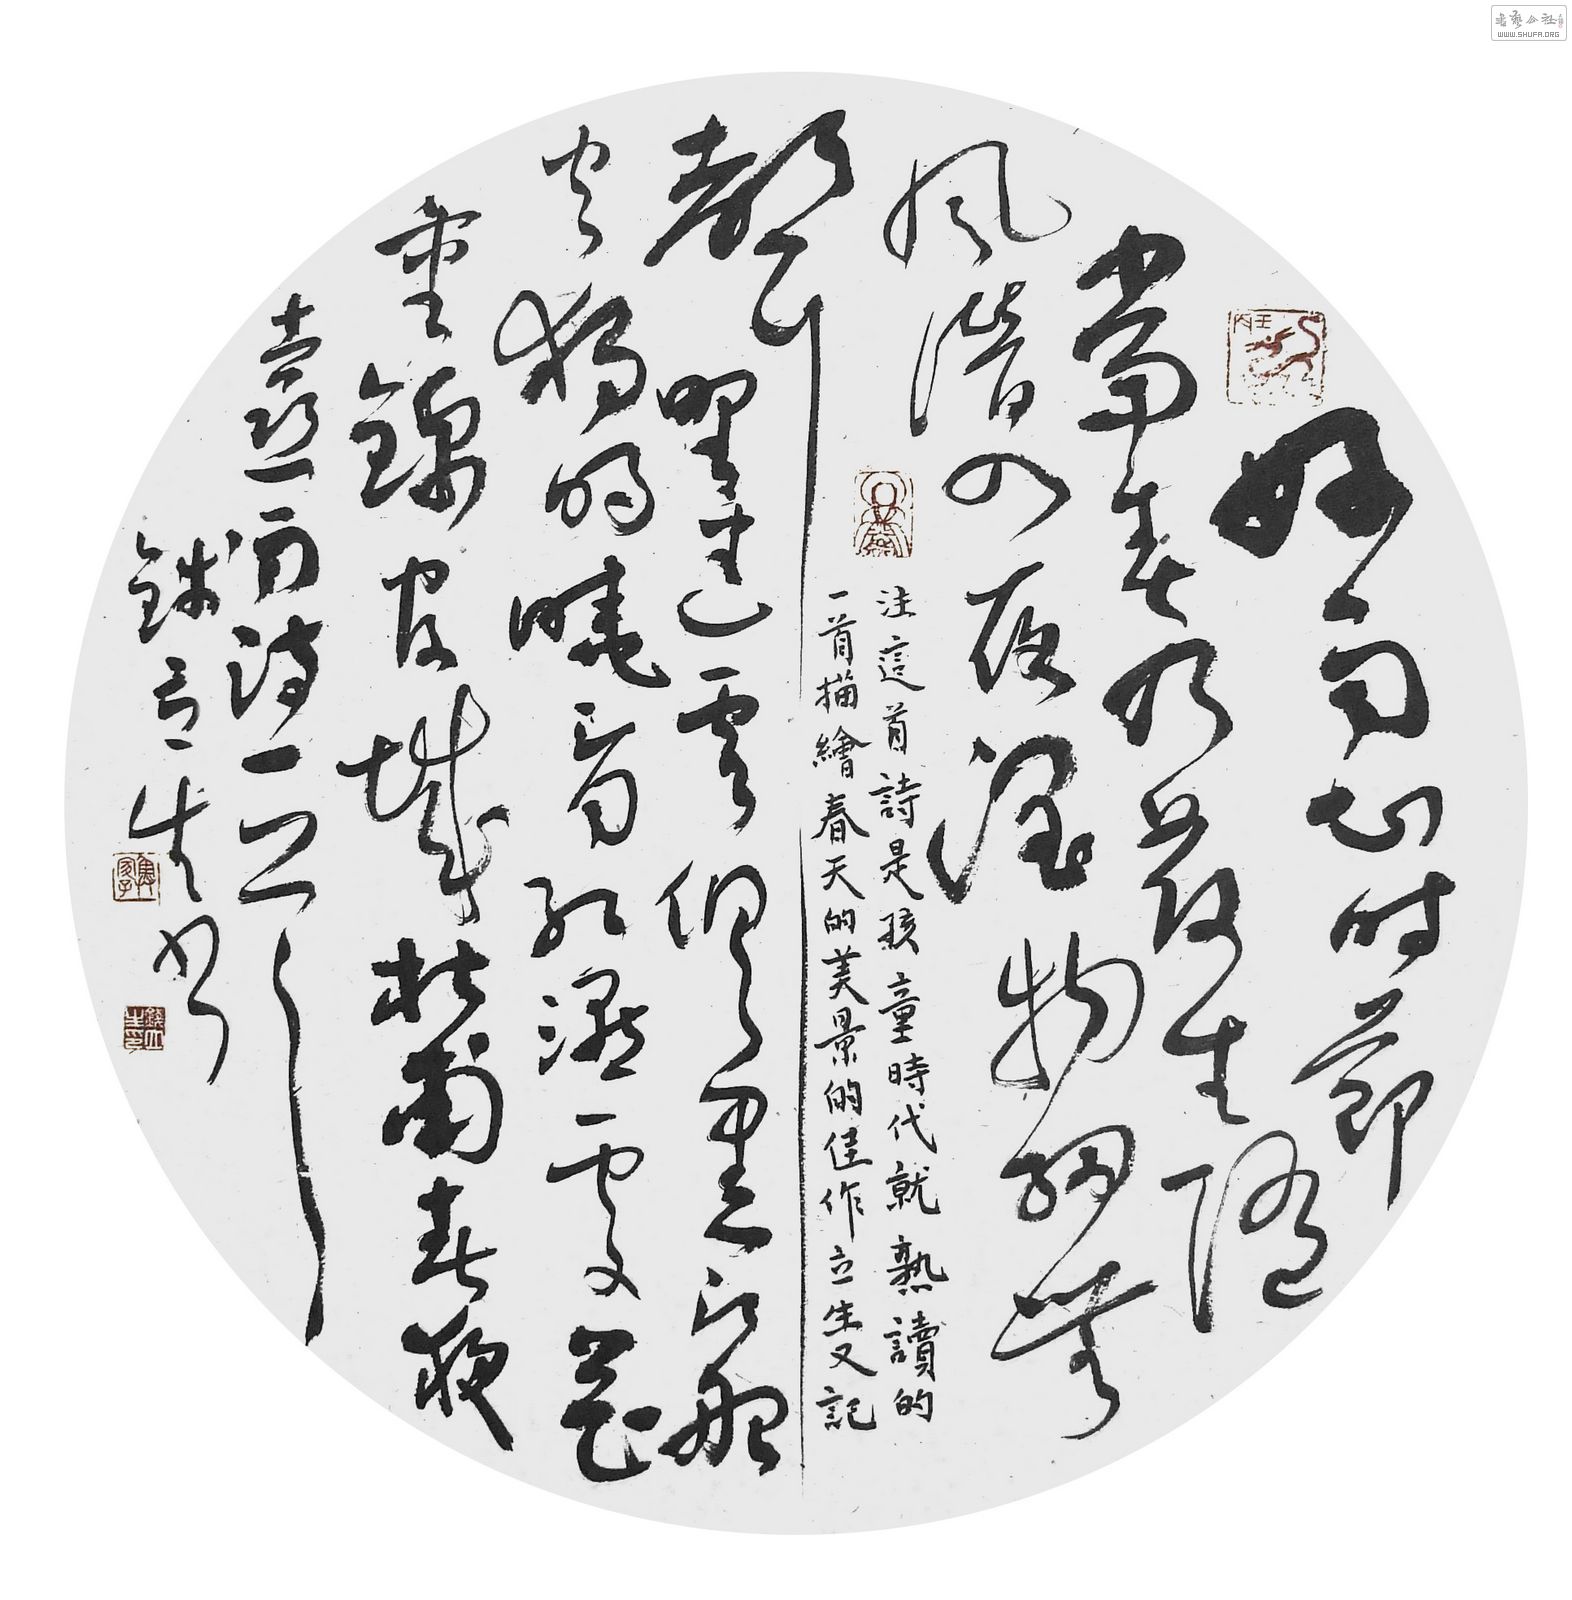 書藝公社
WWW.SHUFA.ORG
好雨知時節
當春乃發生隨
風潛入夜潤物細無
聲野徑雲俱黑江船
注這首詩是孩童時代就熟讀的
一首描繪春天的美景的佳作立生又記
火獨明曉看紅濕處花
重錦官城杜甫春夜
喜雨詩一
錢立生書
錢立生印